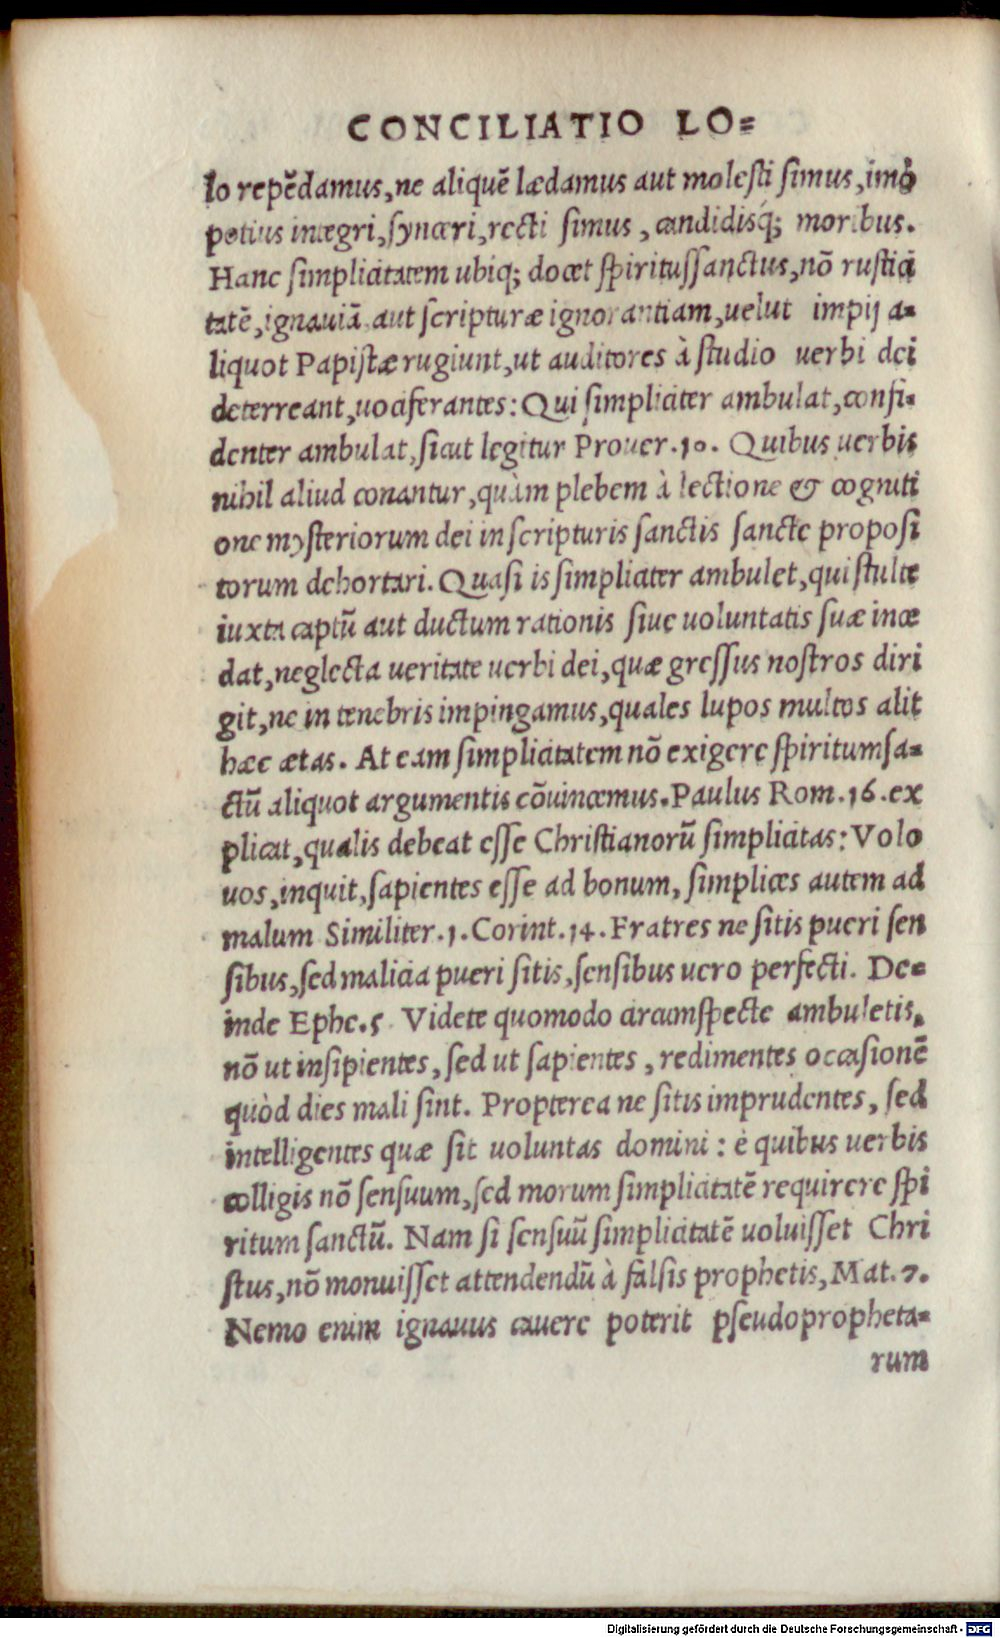 CONCILIATIO LO=
lo repēdamus, ne aliquē lædamus aut molesti simus, imò
potius integri, synceri, recti simus, candidisq́; moribus.
Hanc simplicitatem ubiq; docet spiritussanctus, nō rustici
tatē, ignauiā aut scripturæ ignorantiam, uelut impij a=
liquot Papistæ rugiunt, ut auditores à studio uerbi dei
deterreant, uociferantes: Qui simpliciter ambulat, confi=
denter ambulat, sicut legitur Prouer. 10. Quibus uerbis
nihil aliud conantur, quàm plebem à lectione & cogniti
one mysteriorum dei in scripturis sanctis sancte proposi
torum dehortari. Quasi is simpliciter ambulet, qui stulte
iuxta captū aut ductum rationis siue uoluntatis suæ ince
dat, neglecta ueritate uerbi dei, quæ gressus nostros diri
git, ne in tenebris impingamus, quales lupos multos alit
hæc ætas. At eam simplicitatem nō exigere spiritum sa=
ctū aliquot argumentis cōuincemus. Paulus Rom. 16. ex
plicat, qualis debeat esse Christianorū simplicitas: Volo
uos, inquit, sapientes esse ad bonum, simplices autem ad
malum Similiter. 1. Corint. 14. Fratres ne sitis pueri sen
sibus, sed malicia pueri sitis, sensibus uero perfecti. De=
inde Ephe. 5 Videte quomodo circumspecte ambuletis,
nō ut insipientes, sed ut sapientes, redimentes occasionē
quòd dies mali sint. Propterea ne sitis imprudentes, sed
intelligentes quæ sit uoluntas domini: è quibus uerbis
colligis nō sensuum, sed morum simplicitatē requirere spi
ritum sanctū. Nam si sensuū simplicitatē uoluisset Chri
stus, nō monuisset attendendū à falsis prophetis, Mat. 7.
Nemo enim ignauus cauere poterit pseudopropheta=
rum
Digitalisierung gefördert durch die Deutsche Forschungsgemeinschaft - DFG